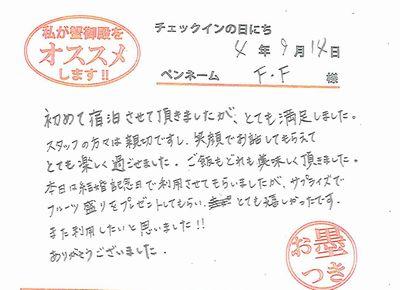 私が蟹御殿を
オススメ
します!!
チェックインの日にち
4年9月14日
ペンネーム F.F 様
初めて宿泊させて頂きましたが、とても満足しました。
スタッフの方々は親切ですし、笑顔でお話してもらえて
とても楽しく過ごせました。ご飯もどれも美味しく頂きました。
本日は結婚記念日で利用させてもらいましたが、サプライズで
フルーツ盛りをプレゼントしてもらい、とても嬉しかったです。
また利用したいと思いました!!
ありがとうございました。
お墨
つき